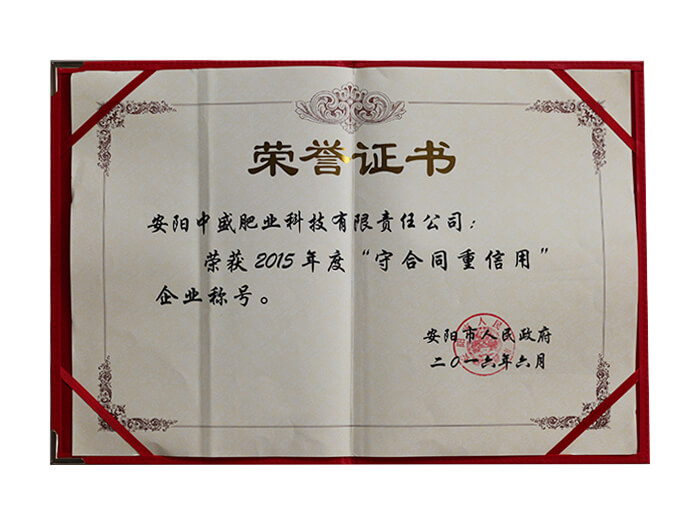 荣誉证书
安阳中盛肥业科技有限责任公司：
荣获2015年度“守合同重信用”
企业称号。
安阳市人民政府
二〇一六年六月